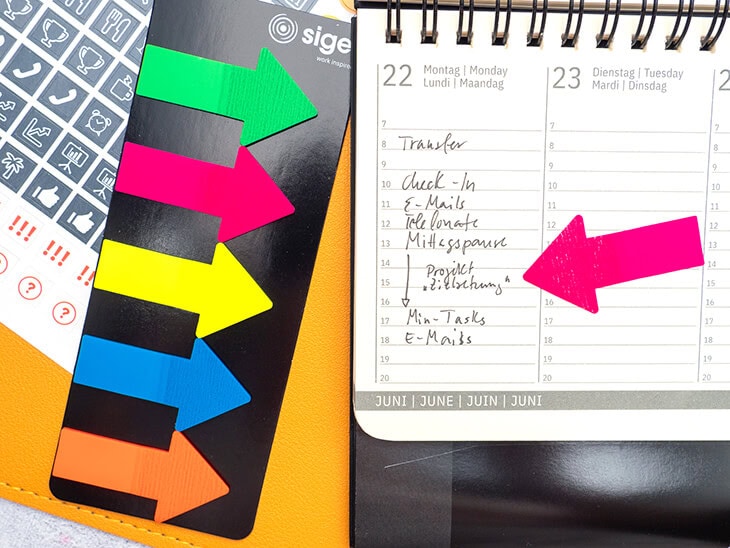 sigel
work inspired
!!!
!!!
!!!
?
?
?
22 Montag | Monday
Lundi | Maandag
7
8 Transfer
9
10 Check-In
11 E-Mails
12 Telefonate
13 Mittagspause
14 Projekt
15 "Zielsetzung"
16
17 Min-Tasks
18 E-Mails
19
20
23 Dienstag | Tuesday
Mardi | Dinsdag
7
8
9
10
11
12
13
14
15
16
17
18
19
20
2
JUNI | JUNE | JUIN | JUNI